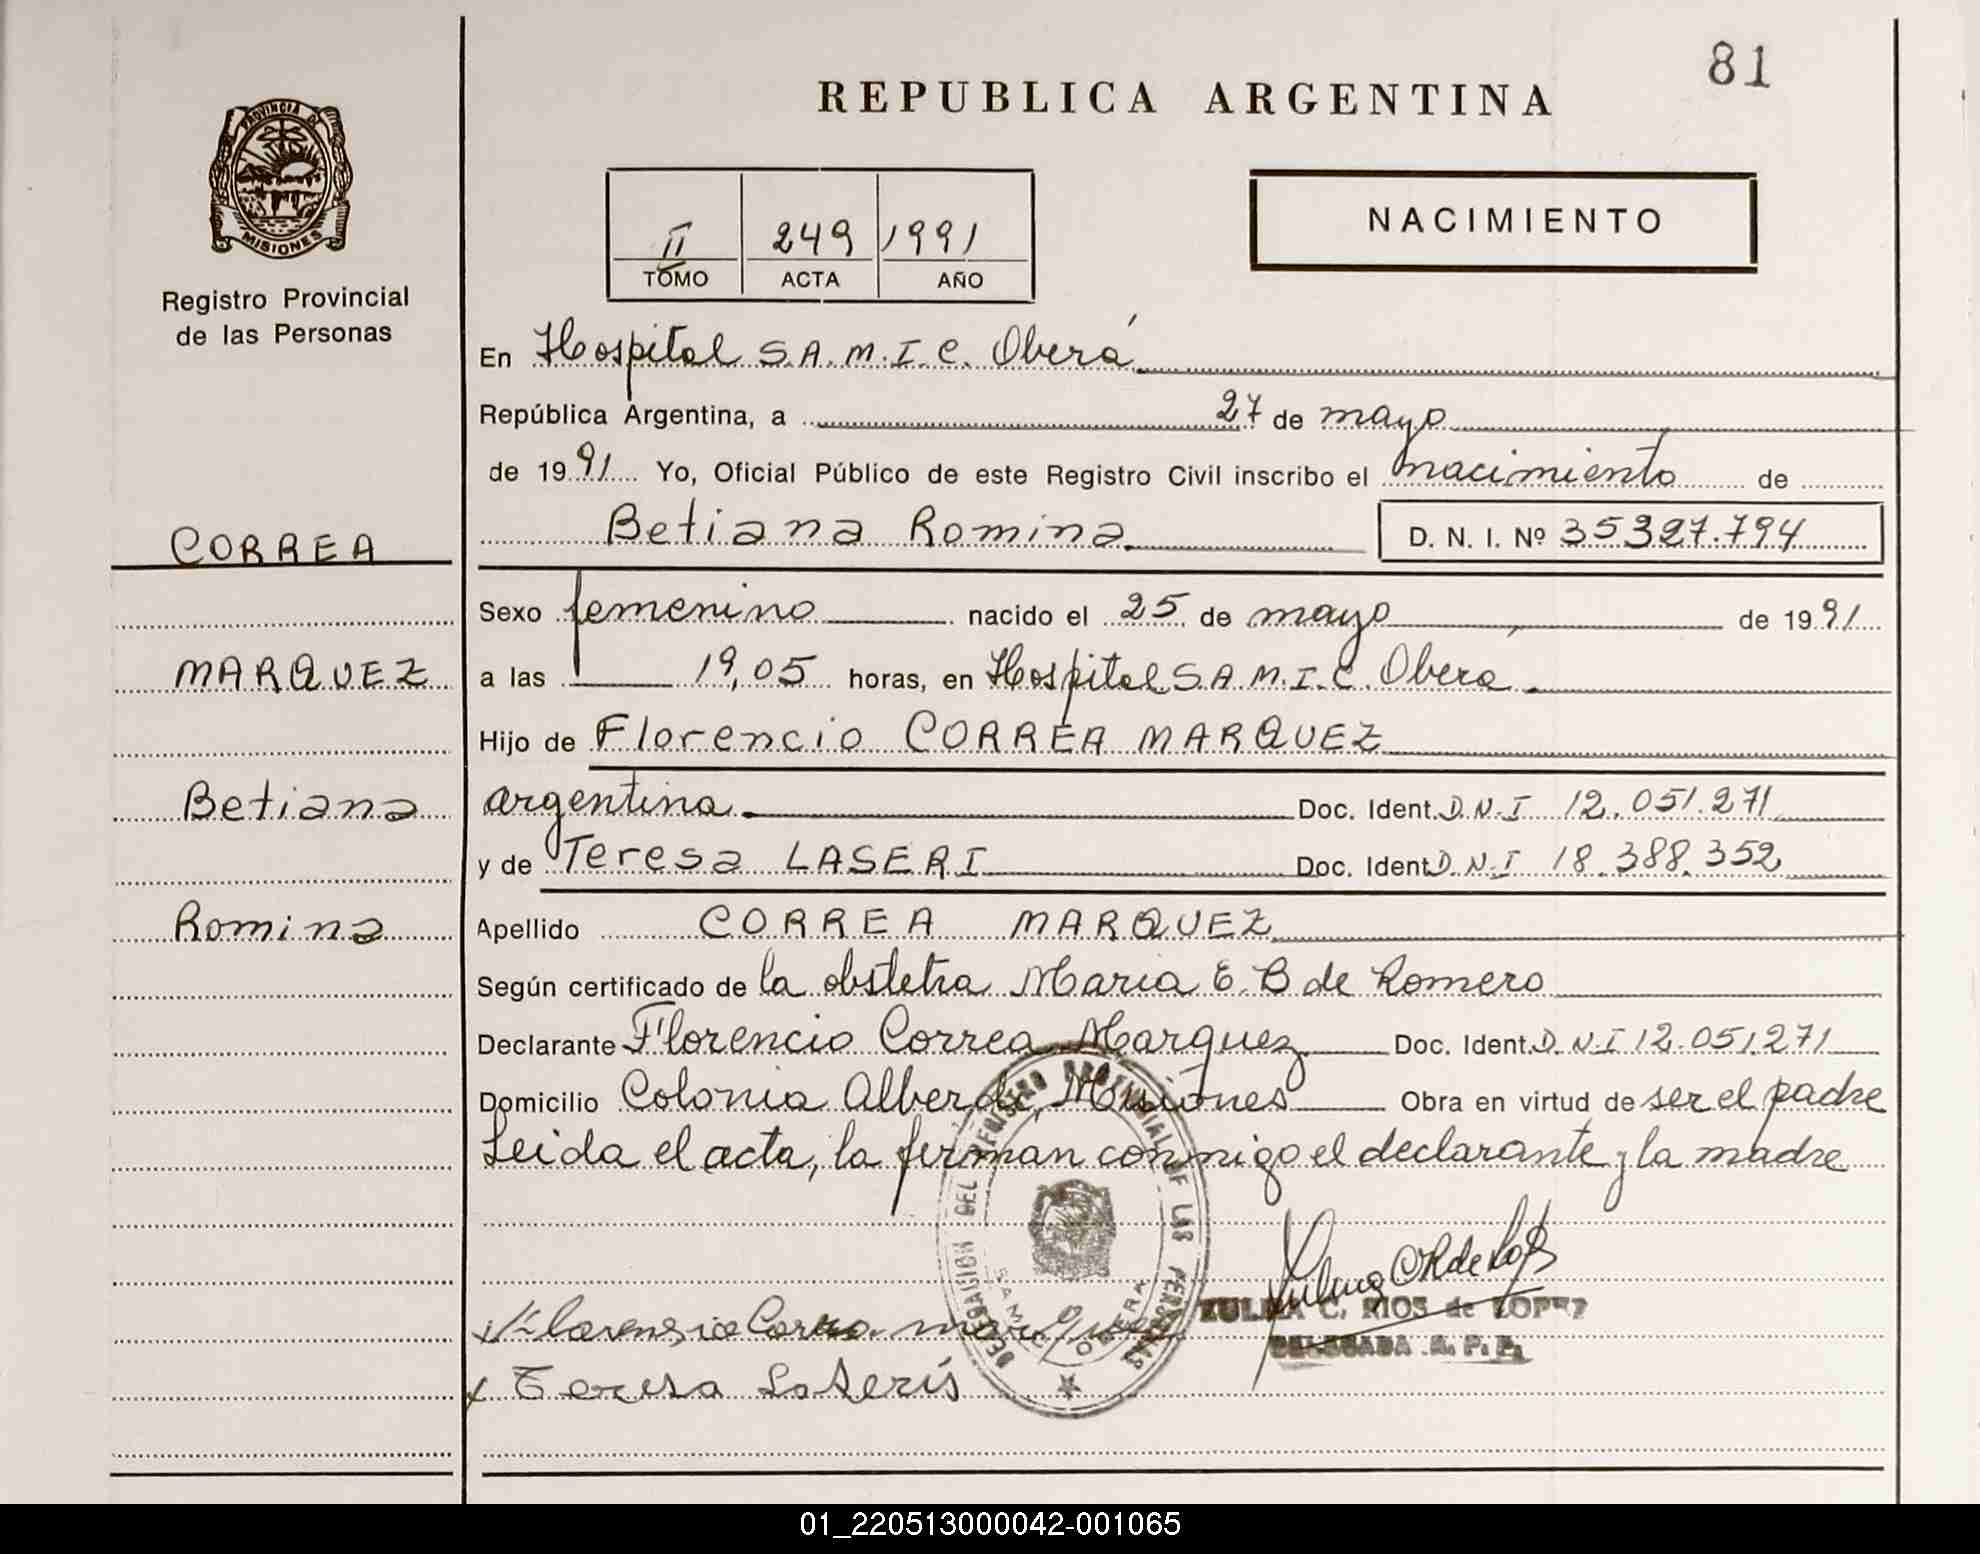 81
REPUBLICA ARGENTINA
PROVINCIA DE
MISIONES
Registro Provincial
de las Personas
II 249 1991
TOMO ACTA AÑO
NACIMIENTO
En Hospital S.A.M.I.C. Oberá
República Argentina, a 27 de mayo
de 1991 Yo, Oficial Público de este Registro Civil inscribo el nacimiento de
Betiana Romina D. N. I. Nº 35327.794
CORREA
MARQUEZ
Betiana
Romina
Sexo femenino nacido el 25 de mayo de 1991
a las 19,05 horas, en Hospital S.A.M.I.C. Oberá
Hijo de Florencio CORREA MARQUEZ
argentina Doc. Ident. D.N.I 12.051.271
y de Teresa LASERI Doc. Ident D.N.I 18.388.352
Apellido CORREA MARQUEZ
Según certificado de la obstetra Maria E. B de Romero
Declarante Florencio Correa Marquez Doc. Ident. D.N.I 12.051.271
Domicilio Colonia Alberdi, Misiones Obra en virtud de ser el padre
Leida el acta, la firman conmigo el declarante y la madre
DELEGACION DEL REGISTRO PROVINCIAL DE LAS PERSONAS
SAMIC OBERA
ZULMA C. RIOS de LOPEZ
DELEGADA R. P. P.
x Teresa Laseris
01_220513000042-001065